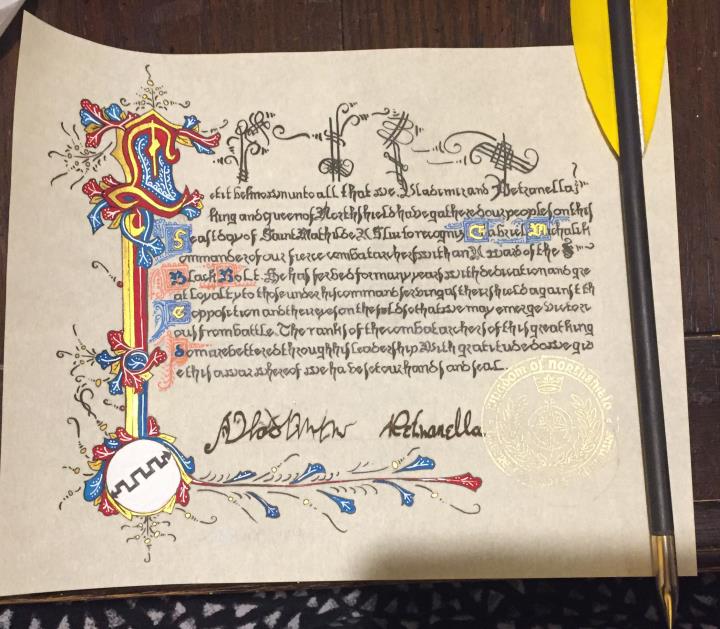 Let it be known unto all that we, Vladimir and Petranella,
King and queen of Northshield have gathered our people on this
Feast day of Saint Mathilde, to recogniz Gabriel Michalik
Commander of our fierce combat archers with an Award of the
Black Bolt. He has served for many years with dedication and gre
at loyalty to those under his command serving as their shield against th
e opposition and their eyes on the field so that we may emerge victori
ous from battle. The ranks of the combat archers of this great king
dom are bettered through his leadership With gratitude do we giv
e this award whereof we have set our hands and seal.
Petranella
Kingdom of Northshield